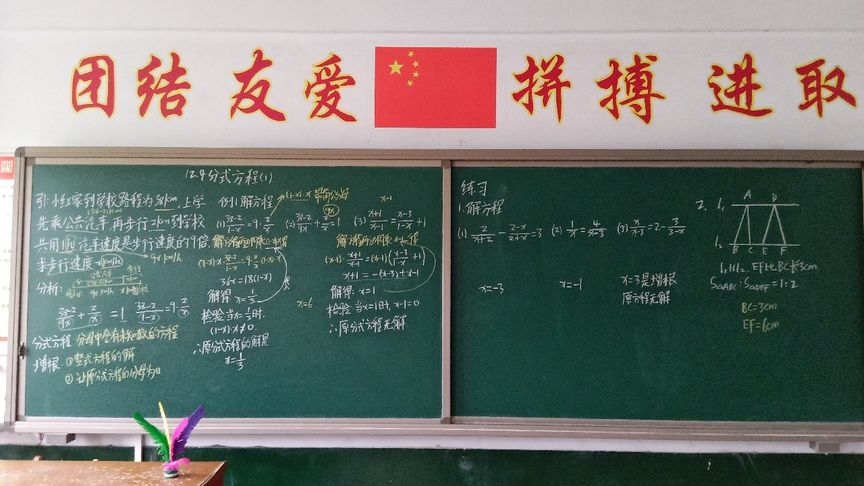 团结 友爱 拼搏 进取
12.4分式方程(1)
引:小红家到学校路程为38km,上学
先乘公共汽车,再步行2km到学校
共用1h,汽车速度是步行速度的9倍.
求步行速度
分析:
(38-2)/9x + 2/x = 1 (38-2)/(1-x) = 9·2/x
分式方程 分母中含有未知数的方程
增根:①整式方程的解
②让原分式方程的分母为0
例1.解方程
(1) (38-2)/(1-x) = 9·2/x
36x=18(1-x)
解得:x=1/3
检验:当x=1/3时,
(1-x)·x≠0
∴原分式方程的解是
x=1/3
(2) (38-2)/9x + 2/x = 1
x=6
x-1
(3) (x+1)/(x-1) = (x-3)/(1-x) + 1
(x-1)·(x+1)/(x-1) = (x-1)((x-3)/(1-x)+1)
x+1=-(x-3)+x-1
解得:x=1
检验:当x=1时,x-1=0
∴原分式方程无解
练习
1.解方程
(1) 2/(x+2) - (2-x)/(2+x) = 3
x=-3
(2) 1/x = 4/(x-3)
x=-1
(3) x/(x-3) = 2 - 3/(3-x)
x=3是增根
原方程无解
2.
A D
B C E F
l₁∥l₂ EF比BC长3cm
S△ABC:S△DEF=1:2
BC=3cm
EF=6cm